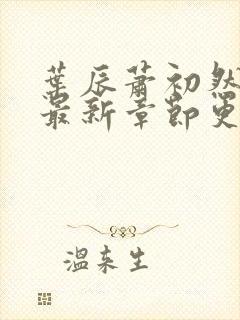 葉辰蕭初然
最新章節更
溫來生